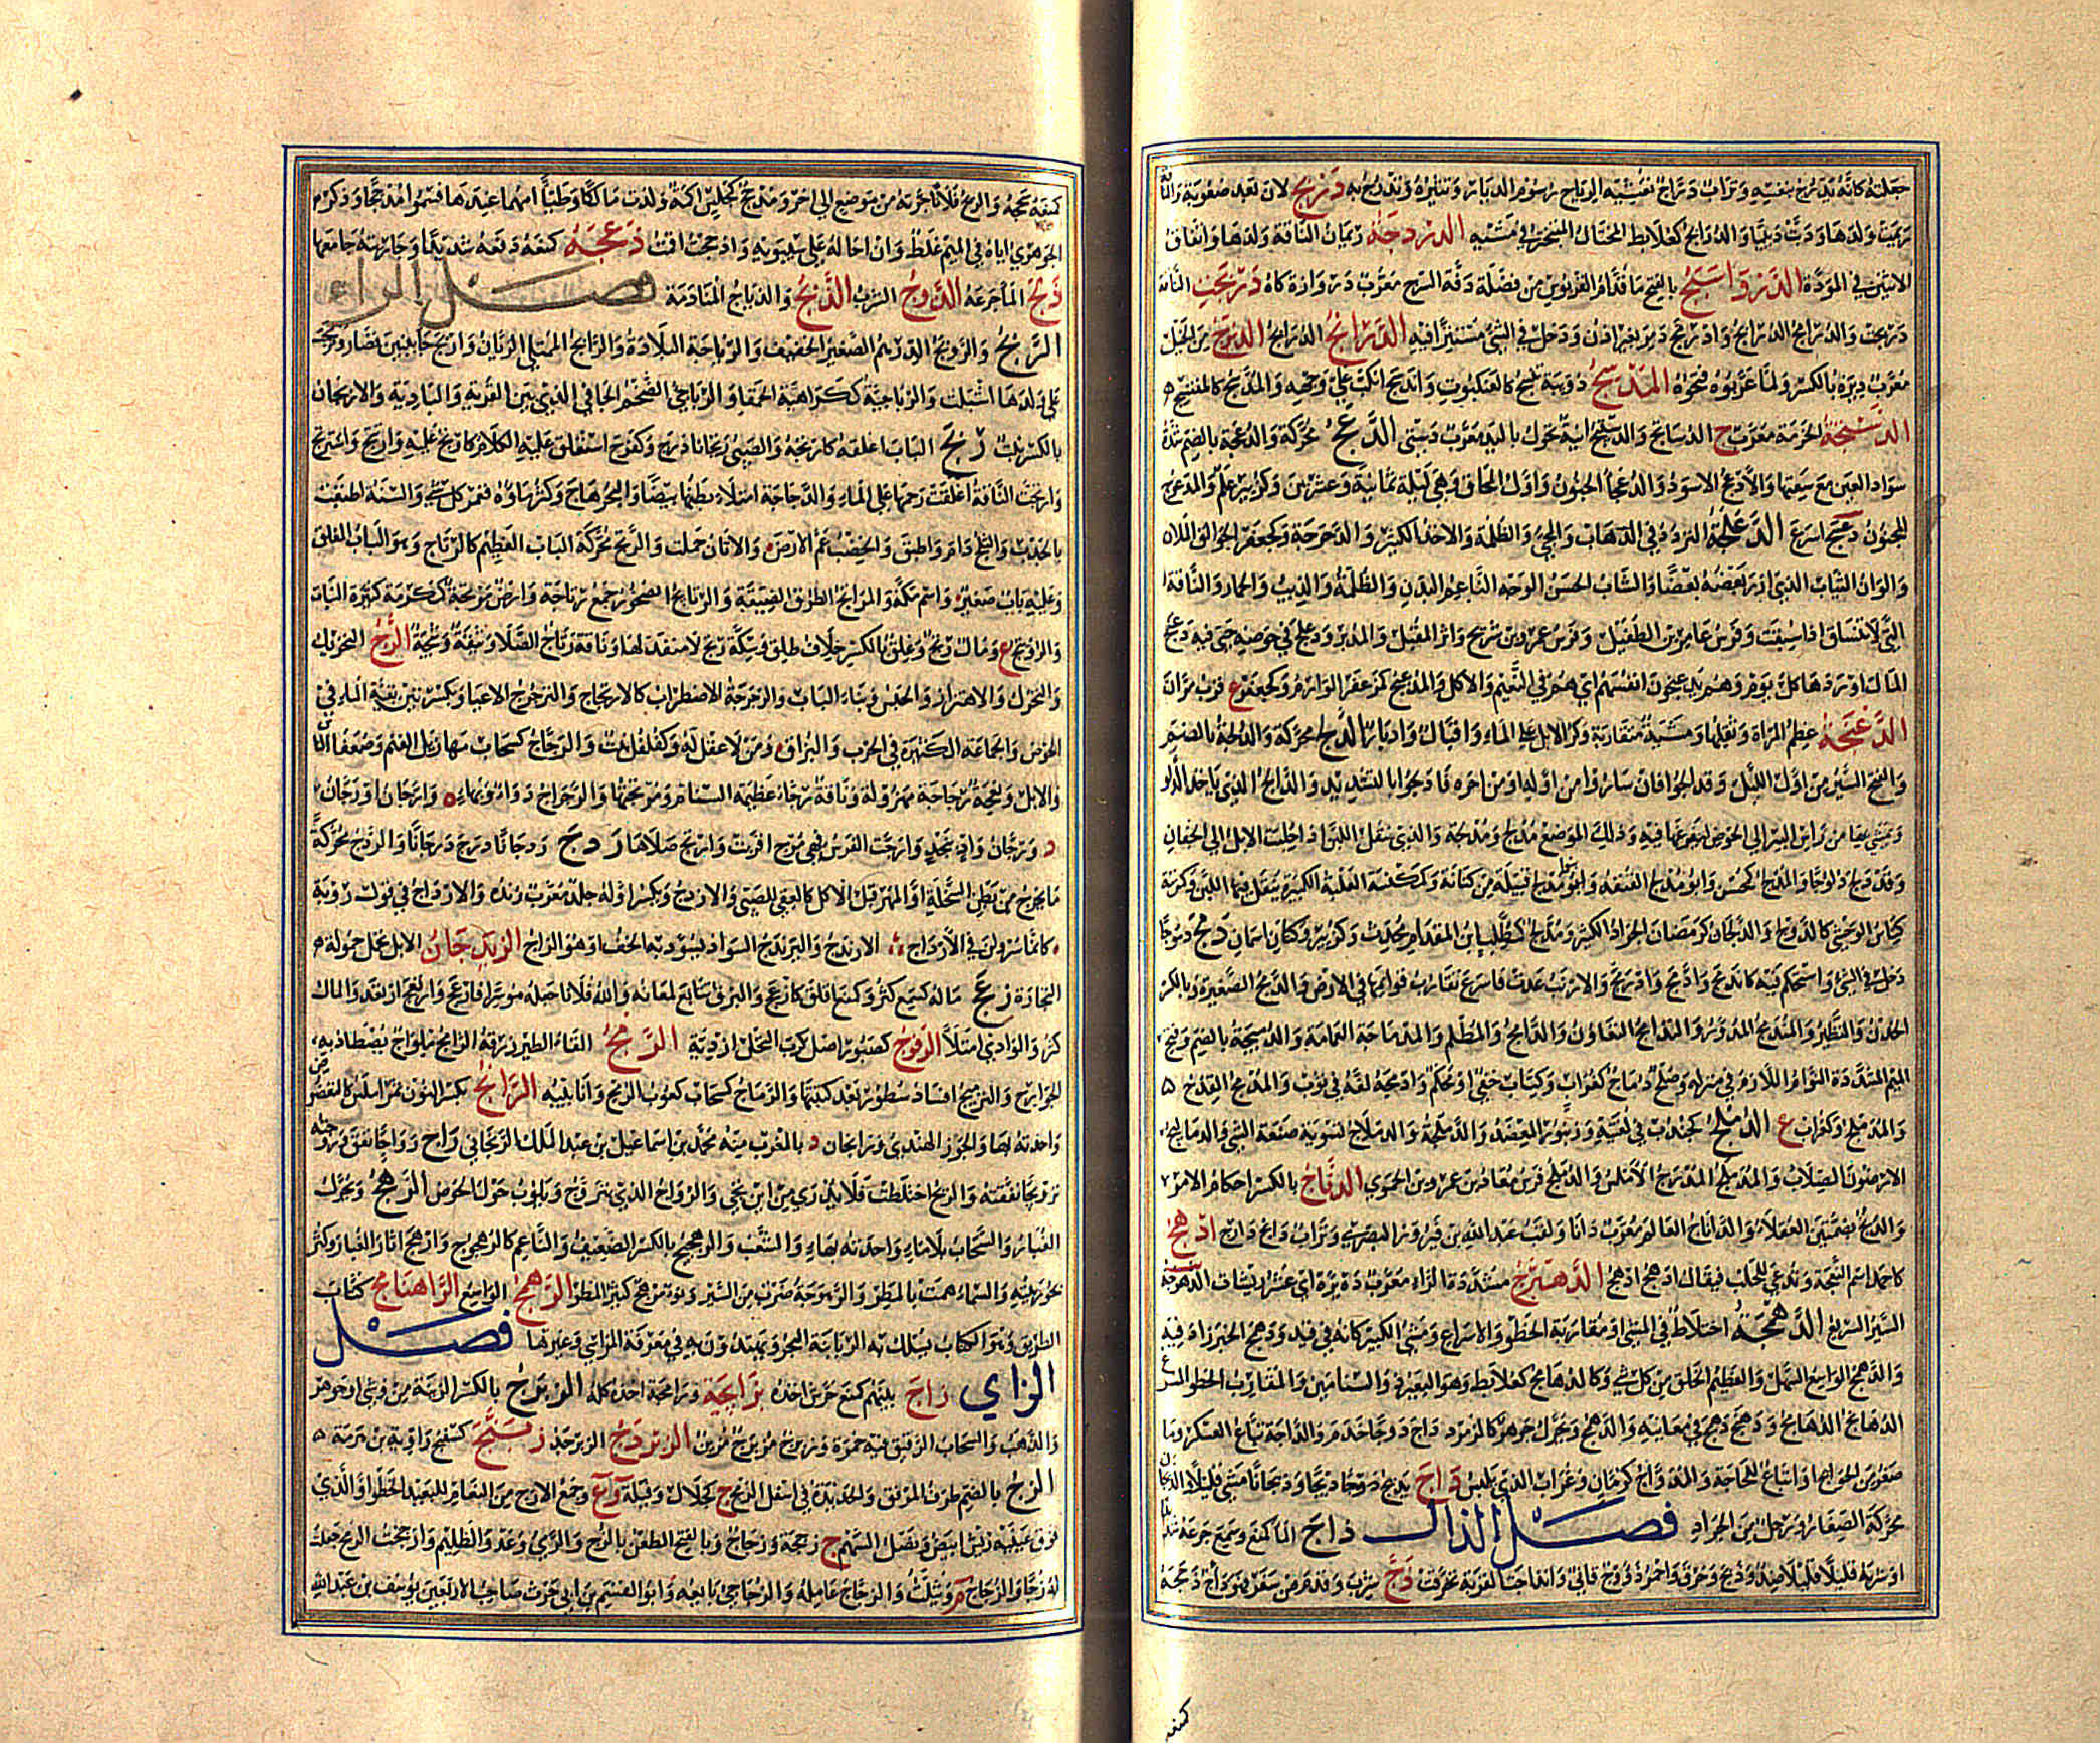 جعلته كأنه يدرج بنفسه وتراب دراج تغشيه الرياح رسوم الديار وتثيره وتدرج به دربج لان بعد صعوبة والناقة
رئمت ولدها ودب دبيبا والدرابج كعلابط المختال المتبختر في مشيه الدردجة رئمان الناقة ولدها واتفاق
الاثنين في المودة الدرواسنج بالفتح ما قدام القربوس من فضلة دفة السرج معرب در وازه كاه درمجت الناقة
دربجت والدرامج الدرابج وادرمج دمر بغير اذن ودخل في الشيء مستترا فيه الدرانج الدرابج الديزج من الخيل
معرب ديزه بالكسر ولما عربوه فتحوه المدسج دويبة تنسج كالعنكبوت واندسج انكب على وجهه والمدسج كالمنتسج
الدستجة الحزمة معرب ج الدساتج والدستيج آنية تحول باليد معرب دستي الدعج محركة والدعجة بالضم شدة
سواد العين مع سعتها والادعج الاسود والدعجاء الجنون واول المحاق وهي ليلة ثمانية وعشرين وكزبير علم والمدعوج
المجنون دعسج اسرع الدعلجة التردد في الذهاب والمجيء والظلمة والاخذ الكثير والدحرجة وكجعفر الجوالق الملآن
والوان الثياب الذي ازر بعضه بعضا والشاب الحسن الوجه الناعم البدن والظلمة والذيب والحمار والناقة
التي لا تنساق اذا سيقت وفرس عامر بن الطفيل وفرس عمرو بن شريح واثر المقبل والمدبر ودعلج في حوضه جبى فيه دغج
المال اوردها كل يوم وهم يدغبجون انفسهم اي هم في النعيم والاكل والمدغبج كمزعفر الوارم وكجعفر ع قرب مران
الدغنجة عظم المراة وثقلها ومشية متقاربة وكر الابل على الماء واقبال وادبار الدلج محركة والدلجة بالضم
والفتح السير من اول الليل وقد ادلجوا فان ساروا من آخره فادلجوا بالتشديد والدالج الذي ياخذ الدلو
ويمشي بها من راس البئر الى الحوض ليفرغها فيه وذلك الموضع مدلج ومدلجة والذي ينقل اللبن اذا حلبت الابل الى الجفان
وقد دلج دلوجا والمدلج كمحسن وابو مدلج القنفذ وبنو مدلج قبيلة من كنانة وكمكنسة العلبة الكبيرة ينقل فيها اللبن وكمرتبة
كناس الوحشي كالدولج والدلجان كرمضان الجراد الكثير ومدلج كمطلب ابن المقدام محدث وكزبير وكتان اسمان دمج دموجا
دخل في الشيء واستحكم فيه كاندمج وادمج وادرمج والارنب عدت فاسرع تقارب قوائمها في الارض والدمج الضفيرة وبالكسر
الخدن والنظير والمدمج المدور والمدامج التعاون والدامج والمظلم والمدماجة العمامة والدميجة بالضم وفتح
الميم المشددة النوام اللازم في منزله وصلح دماج كغراب وكتاب خفي او محكم وادمجه لفه في ثوب والمدمج القدح
والمدملج وكتراب ع الدملج كجندب في لغتيه وزنبور المعضد والدملجة والدملاج تسوية صنعة الشيء والدماليج
الارضون الصلاب والمدملج المدرج الاملس والدملج فرس معاذ بن عمرو بن الجموح الدناج بالكسر احكام الامر
والدنج بضمتين العقلاء والداناج العالم معرب دانا ولقب عبد الله بن فيروز البصري وتراب داغ دارج ادهج
كاحمد اسم النعجة وتدعى للحلب فيقال ادهج ادهج الدهبرج مشددة الراء معرب ده پره اي عشر ريشات الدهرجة
السير السريع الدهمجة اختلاط في المشي او مقاربة الخطو والاسراع ومشي الكبير كانه في قيد ودهمج الخبر زاد فيه
والدهمج الواسع السهل والعظيم الخلق من كل شيء وكالدهامج كعلابط وهو البعير ذو السنامين والمقارب الخطو السريع
الدهانج الدهامج ودهنج دهمج في معانيه والدهنج ويحرك جوهر كالزمرد داج دوجا خدم والداجة تباع العسكر وما
صغر من الحوايج او اتباع للحاجة والدواج كرمان وغراب الذي يلبس داج يديج ديجا وديجانا مشى قليلا والديجان
محركة الصغار ورجل من الجراد فصل الذال ذاج الماء كمنع وسمع جرعه شديدا
او شربه قليلا قليلا ضد وذبح وخرق واحمر ذؤوج قاني وانذاجت القربة تخرقت ذج شرب وقدم من سفر فهو ذاج ذحجه
كمنعه
كمنعه سحجه والريح فلانا جرته من موضع الى اخر ومذحج كمجلس اكمة ولدت مالكا وطيئا امهما عندها فسموا مذحجا وذكره
الجوهري اياه في الميم غلط وان احاله على سيبويه واذحجت اقت ذعجه كمنعه دفعه شديدا وجاريته جامعها
ذلج الماء جرعه الذوج الشرب الذيج والذياج المنادمة فصل الراء
الربج والروبج الدرهم الصغير الخفيف والرباجة البلادة والرابج الممتلي الريان واربج جاء ببنين قصار وتربجت
على ولدها اشبلت والرباجية ككراهية الحمقاء والرباجي الضخم الجافي الذي بين القرية والبادية والاربجان
بالكسر نبت رتج الباب اغلقه كارتجه والصبي رتجانا درج وكفرح استغلق عليه الكلام كارتج عليه وارتتج واسترتج
وارتجت الناقة اغلقت رحمها على الماء والدجاجة امتلأ بطنها بيضا والبحر هاج وكثر ماؤه فغمر كل شيء والسنة اطبقت
بالجدب والثلج دام واطبق والخصب عم الارض والاتان حملت والرتج محركة الباب العظيم كالرتاج وهو الباب المغلق
وعليه باب صغير واسم مكة والمراتج الطرق الضيقة والرتايج الصخور جمع رتاجة وارض مرتجة كمكرمة كثيرة النبات
والرويتج ع ومال رتج وغلق بالكسر خلاف طلق وسكة رتج لا منفذ لها وناقة رتاج الصلا وثيقة وثيجة الرج التحريك
والتحرك والاهتزاز والحبس وبناء الباب والرجرجة الاضطراب كالارتجاج والترجرج الاعياء وبكسرتين بقية الماء في
الحوض والجماعة الكثيرة في الحرب والبزاق ومن لا عقل له وكفلفل نبت والرجاج كسحاب مهازيل الغنم وضعفاء الناس
والابل ونعجة رجاجة مهزولة وناقة رجاء عظيمة السنام ومرتجتها والرجراج دواء وبهاء ة وارجان او رجان
د ورجان واد بنجد وارجت الفرس فهي مرج اقربت وارتج صلاها ردج ردجانا درج درجانا والردج محركة
ما يخرج من بطن السخلة او المهر قبل الاكل كالعقي للصبي والارندج ويكسر اوله جلد معرب رنده والارداج في قول رؤبة
كانما سرولن في الارداج الارندج واليرندج السواد يسود به الخف او هو الزاج الزيدجان الابل تحمل حمولة
التجارة رعج ماله كسمع كثر وكمنع اقلق كارعج والبرق تتابع لمعانه والله فلانا جعله موسرا فارعج وارتعج ارتعد والمال
كثر والوادي امتلأ الرفوج كصبور اصل كرب النخل ازدية الرمج القاء الطير زرقه الرامج ملواح يصطاد به
الجوارح والترميج افساد سطور بعد كتبتها والرماج كسحاب كعوب الرمح وانابيبه الرانج بكسر النون تمر املس كالتعضوض
واحدته بهاء والجوز الهندي ورانجان د بالمغرب منه محمد بن اسماعيل بن عبد الملك الرنجاني راج رواجا نفق وروجته
ترويجا نفقته والريح اختلطت فلا يدري من اين تجي والرواج الذي يتروج ويلوب حول الحوض الرهج ويحرك
الغبار والسحاب بلا ماء واحدته بهاء والشغب والرهجيج بالكسر الضعيف والناعم كالرهجوج وارهج اثار الغبار وكثر
بخور بيته والسماء همت بالمطر والرهوجة ضرب من السير ونوء مرهج كثير المطر الرهمج الواسع الراهنامج كتاب
الطريق وهو الكتاب يسلك به الربابنة البحر ويهتدون به في معرفة المراسي وغيرها فصل
الزاي زاج بينهم كمنع حرش اخذه بزابجه وزامجه اخذه كله الزبرج بالكسر الزينة من وشي او جوهر
والذهب والسحاب الرقيق فيه حمرة وزبرج مزبرج مزين الزبردج الزبرجد زبنج كسفنج راوية بن هرمة
الزج بالضم طرف المرفق والحديدة في اسفل الرمح ج كجلال وفيلة وجمع الازج من النعام للبعيد الخطو او الذي
فوق عينيه ريش ابيض ونصل السهم ج زججة وزجاج وبالفتح الطعن بالزج والرمي وعدو الظليم وازججت الرمح جعلت
له زجا والزجاج م ويثلث والزجاج عامله والزجاجي بائعه وابو القسم بن ابي حرث صاحب الاربعين يوسف بن عبد الله